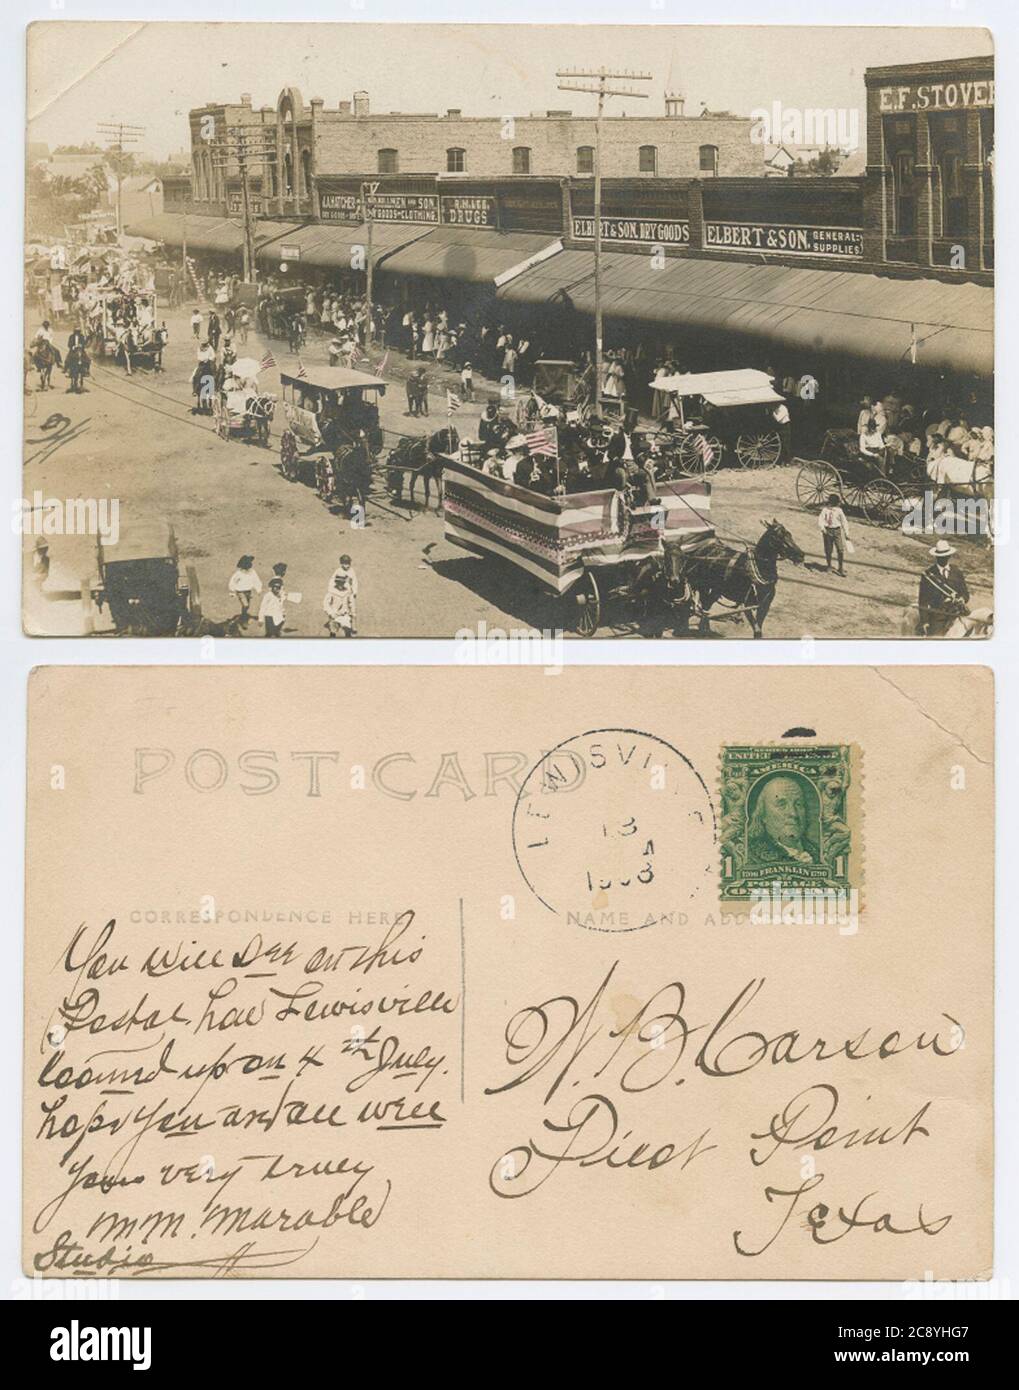 E.F.STOVER
A.A.HATCHER
MEN AND SON.
DRY GOODS
GOODS-CLOTHING.
DRUGS
ELBERT & SON. DRY GOODS
ELBERT & SON. GENERAL-
SUPPLIES
POST CARD
LEWISVILLE
13
A
1908
SERIES 1902
UNITED STATES OF
AMERICA
1 1706 FRANKLIN 1790 1
POSTAGE
ONE CENT
CORRESPONDENCE HERE
NAME AND ADDRESS HERE
You will see on this
Postal how Lewisville
loomed up on 4th July.
hope you and all well
yours very truly
M.M. Marable
Studio
W. B. Carson
Pilot Point
Texas
alamy
Image ID: 2C8YHG7
www.alamy.com